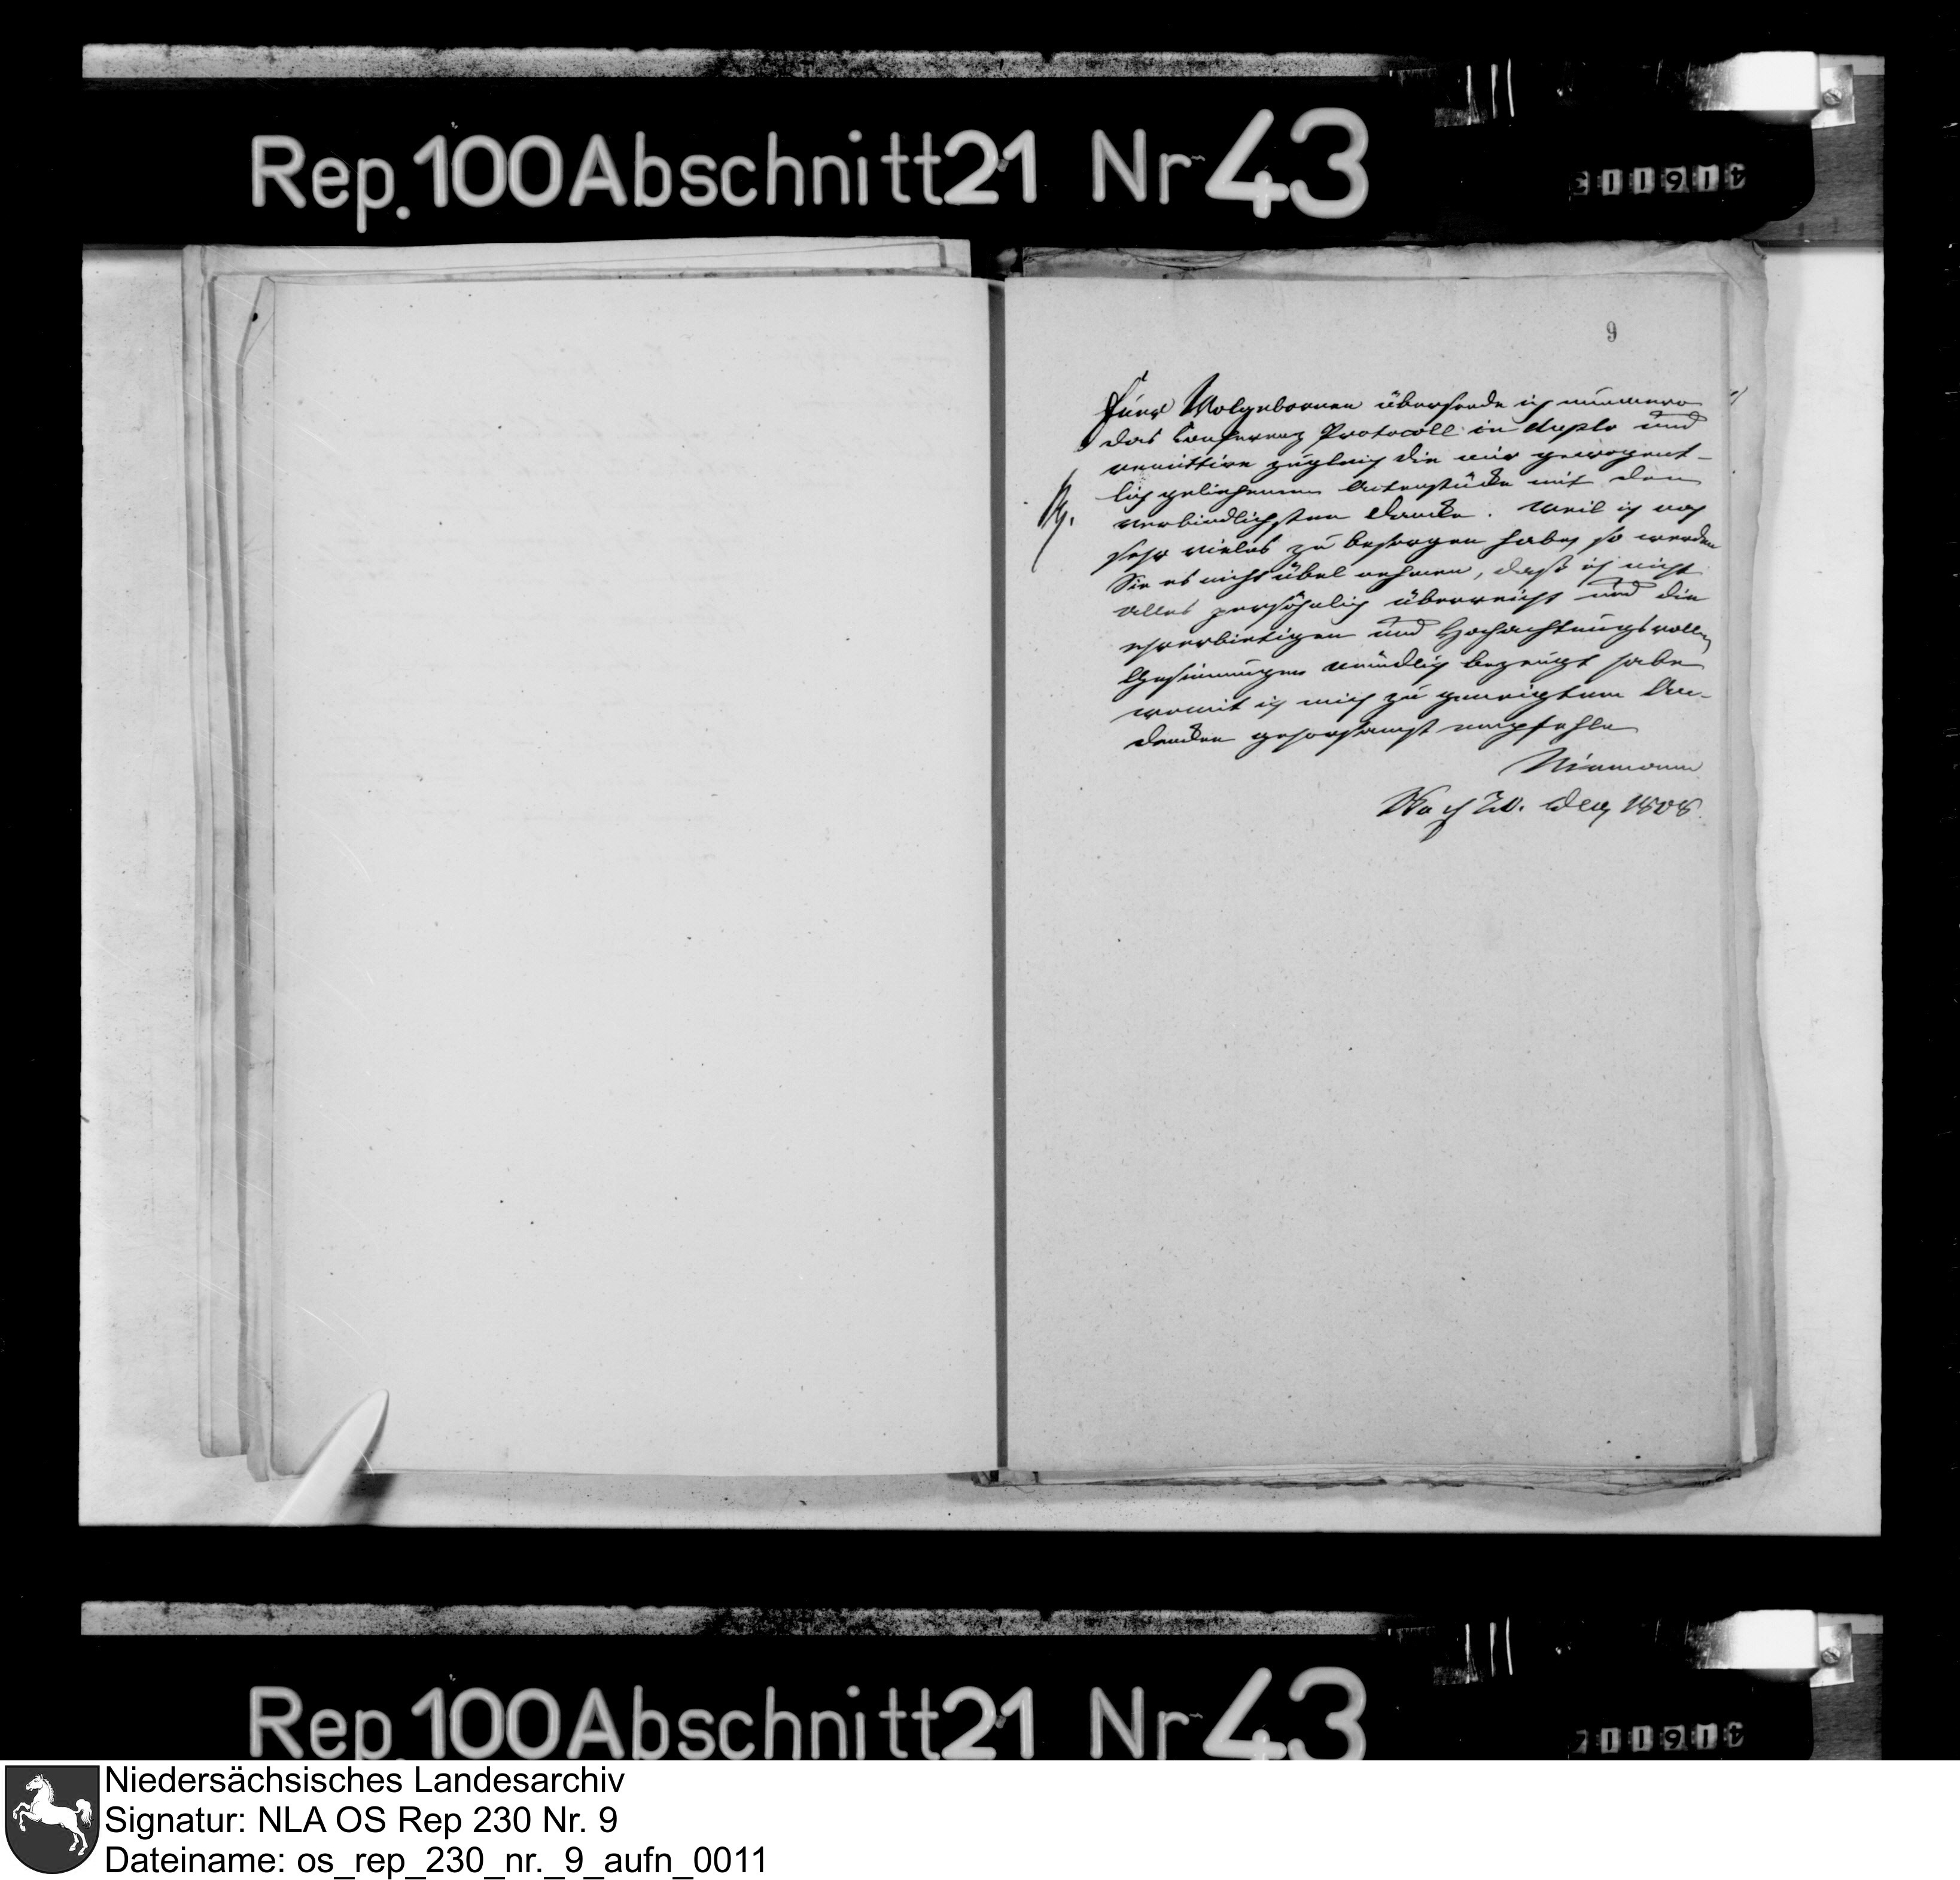 Rep. 100 Abschnitt 21 Nr 43
9
Euer Wolgebornen übersende ich nunmero
das Conferenz Protocoll in duplo und
remittire zugleich die mir gewogent-
lich geliehenen Actenstücke mit dem
verbindlichsten Dancke. Weil ich noch
sehr vieles zu besorgen habe, so werden
Sie es nicht übel nehmen, daß ich nicht
alles persöhnlich überreicht und die
ehrerbietigen und Hochachtungsvollen
Gesinnungen mündlich bezeugt habe
womit ich mich zu geneigtem An-
dencken gehorsamst empfehle
Niemann
20. Dec 1808.
Rep. 100 Abschnitt 21 Nr 43
Niedersächsisches Landesarchiv
Signatur: NLA OS Rep 230 Nr. 9
Dateiname: os_rep_230_nr._9_aufn_0011